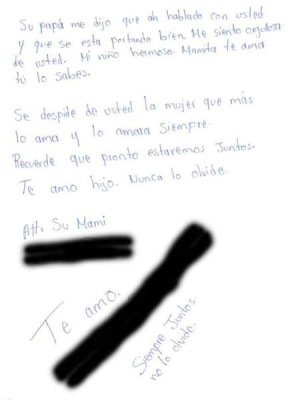 Su papá me dijo que ah hablado con usted
y que se esta portando bien. Me siento orgullosa
de usted. Mi niño hermoso Mamita te ama
tú lo sabes.
Se despide de usted la mujer que más
lo ama y lo amara siempre.
Recuerde que pronto estaremos Juntos.
Te amo hijo. Nunca lo olvide.
Att. Su Mami
Te amo.
Siempre Juntos.
no lo olvide.